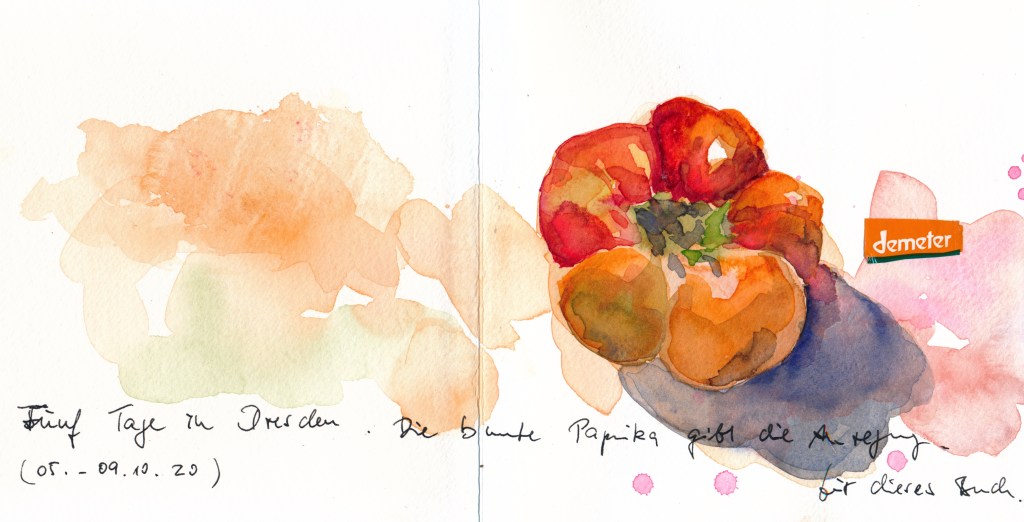 demeter
Fünf Tage in Dresden. Die bunte Paprika gibt die Anregung
(05. - 09.10. 20)
für dieses Buch.